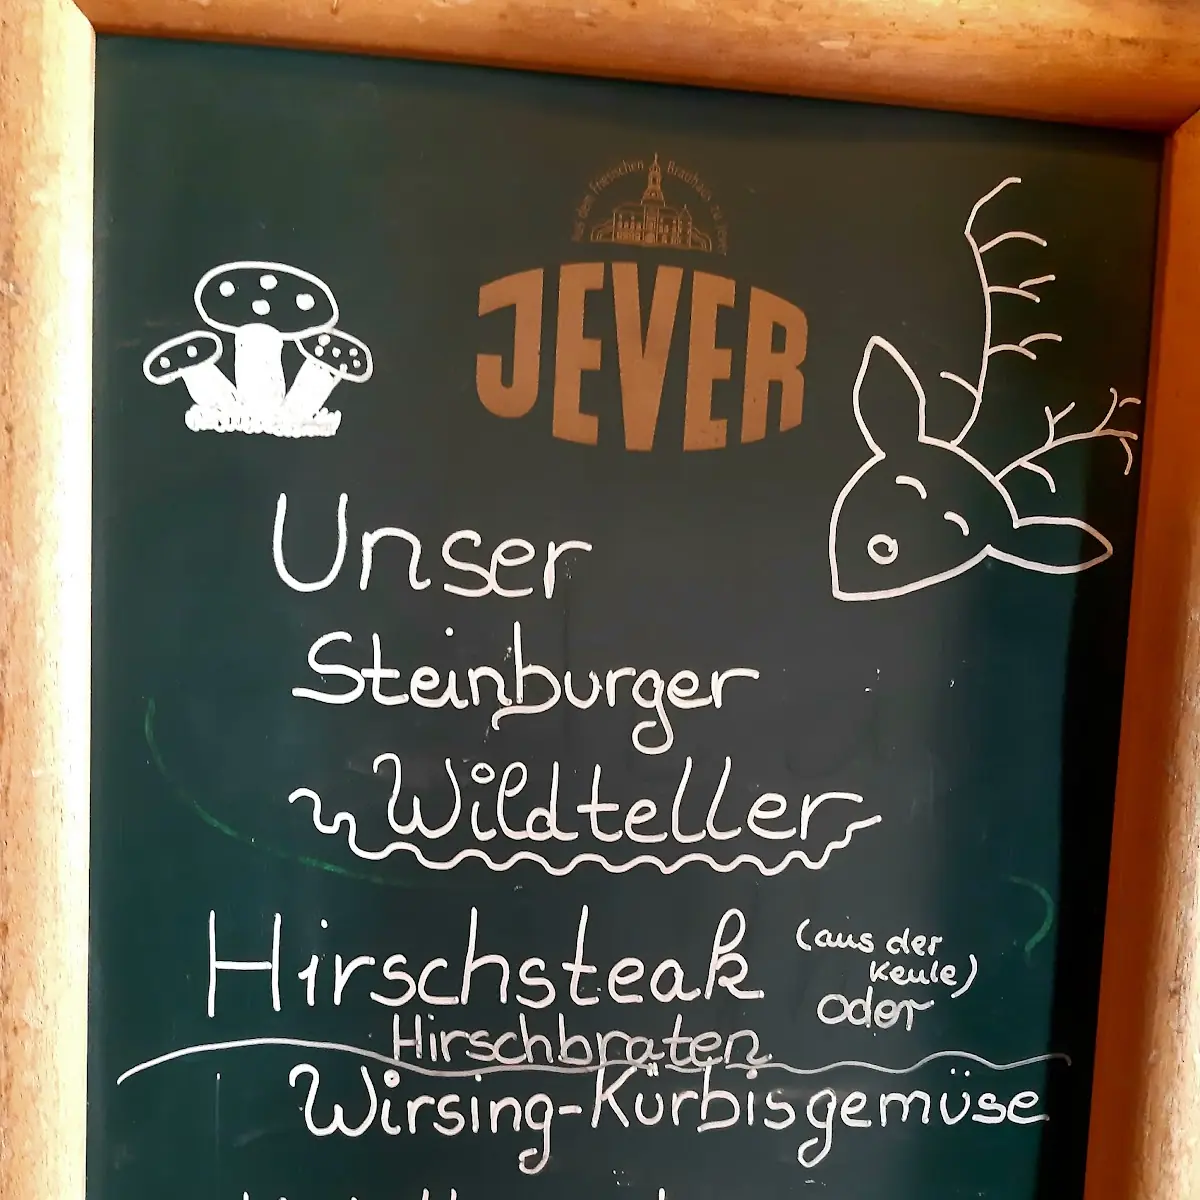 aus dem Friesischen Brauhaus zu Jever
JEVER
Unser
Steinburger
Wildteller
Hirschsteak (aus der
Keule)
oder
Hirschbraten
Wirsing-Kürbisgemüse